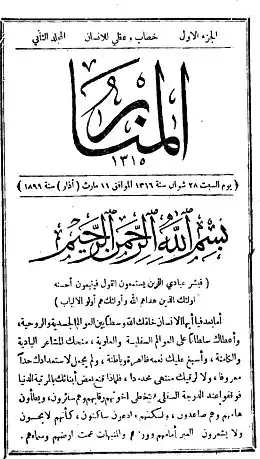 الجزء الاول خطاب عقلي للانسان المجلد الثاني
المنار
١٣١٥
( يوم السبت ٢٨ شوال سنة ١٣١٦ الموافق ١١ مارث ( آذار ) سنة ١٨٩٩ )
بسم الله الرحمن الرحيم
( فبشر عبادي الذين يستمعون القول فيتبعون أحسنه
اولئك الذين هداهم الله وأولئك هم أولو الالباب )
أما بعد فيا أيها الانسان خلقك الله وسطا بين العوالم الجسدية والروحية،
وأعطاك سلطانا على العوالم السفلية والعلوية، منحك المشاعر البادية
والكامنة، وأسبغ عليك نعمه ظاهرة وباطنة، ولم يجعل لاستعدادك حدا
معروفا، ولا لرقيك منتهى محدودا، فلماذا قنع بعض أبنائك بالمرتبة الدنيا
فوقفوا عند الدرجة السفلى، يتخطى اخوتهم رقابهم وهم سائرون، ويطأون
هامهم وهم صاعدون، ولكنهم وادعون ساكنون، كأنهم لا يحسون
ولا يشعرون العبر أمامهم ووراءهم والمنبهات عمت ارضهم وسماءهم.